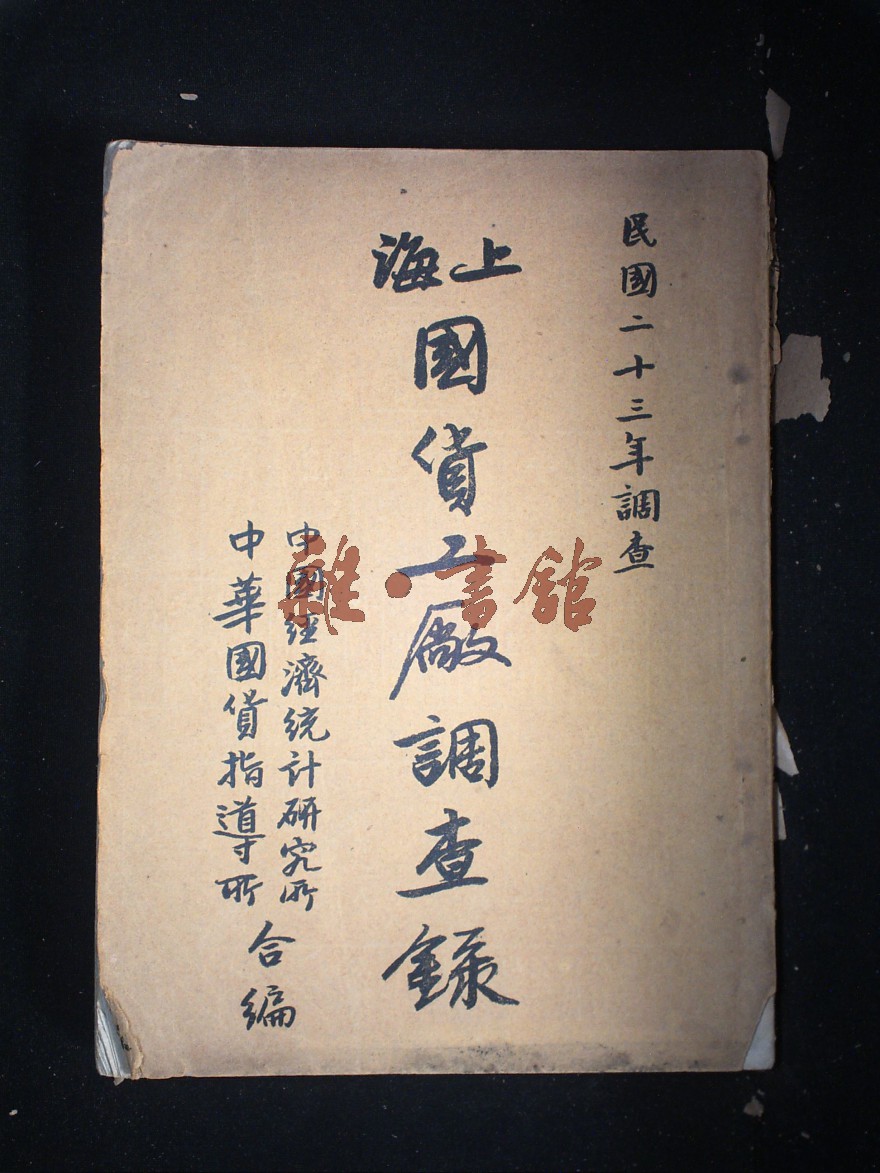 民國二十三年調查
上海
國貨工廠調查錄
中國經濟統計研究所
中華國貨指導所
合編
雜·書館